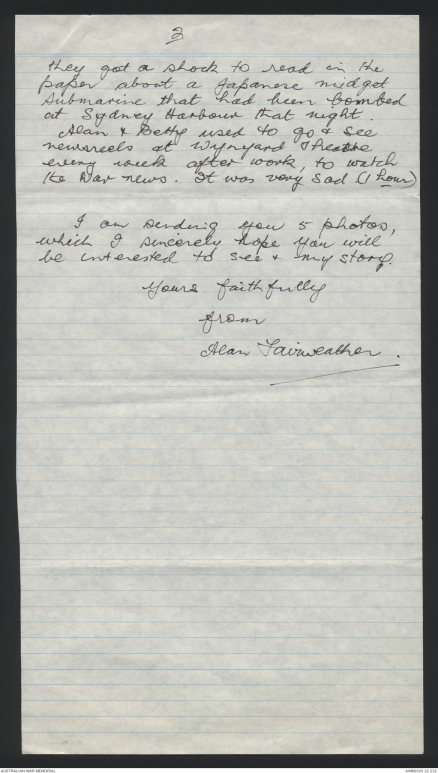 2
they got a shock to read in the
paper about a Japanese midget
submarine that had been bombed
at Sydney Harbour that night.
Alan & Betty used to go & see
newsreels at Wynyard Theatre
every week after work, to watch
the War news. It was very sad (1 hour)
I am sending you 5 photos,
which I sincerely hope you will
be interested to see & my story.
Yours faithfully
from
Alan Fairweather.
AUSTRALIAN WAR MEMORIAL